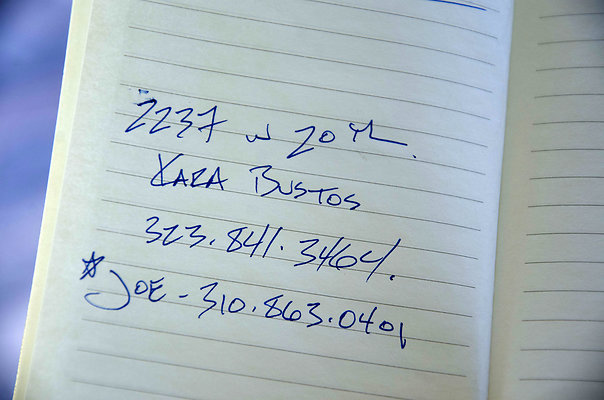 2237 w 20th.
XARA BUSTOS
323.841.3464.
☆JOE - 310.863.0401